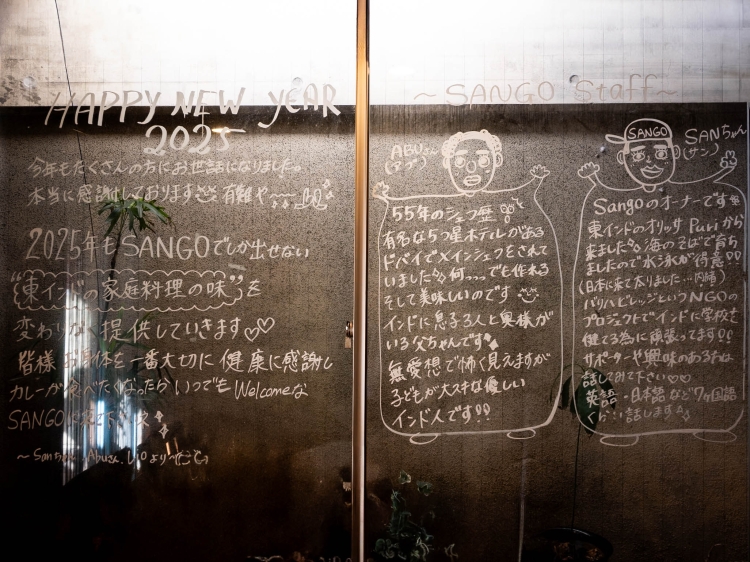 HAPPY NEW yEAR
2025
今年もたくさんの方にお世話になりました。
本当に感謝しております 有難や
2025年もSANGOでしか出せない
"東インドの家庭料理の味"を
変わりなく提供していきます♡♡
皆様 お身体を一番大切に 健康に感謝し
カレーが食べたくなったら いつでもWelcomeな
SANGO
~Sanちゃん、Abuさん、 より~
~ SANGO Staff~
ABUさん
(アブ)
55年のシェフ歴
有名な5つ星ホテルがある
ドバイでメインシェフをされて
いました 何でも作れる
そして美味しいのです
インドに息子3人と奥様が
いる父ちゃんです
無愛想で怖く見えますが
子どもが大スキな優しい
インド人です!!
SANGO
SANちゃん
(サン)
Sangoのオーナーです
東インドのオリッサ Puriから
来ました 海のそばで育ち
ましたので水泳が得意!!
(日本に来て太りました…内緒)
バリハビレッジというNGOの
プロジェクトでインドに学校を
健てる為に頑張ってます!!
サポーターや興味のある方は
話してみて下さい♡♡
英語・日本語など7ヶ国語
くらい話します